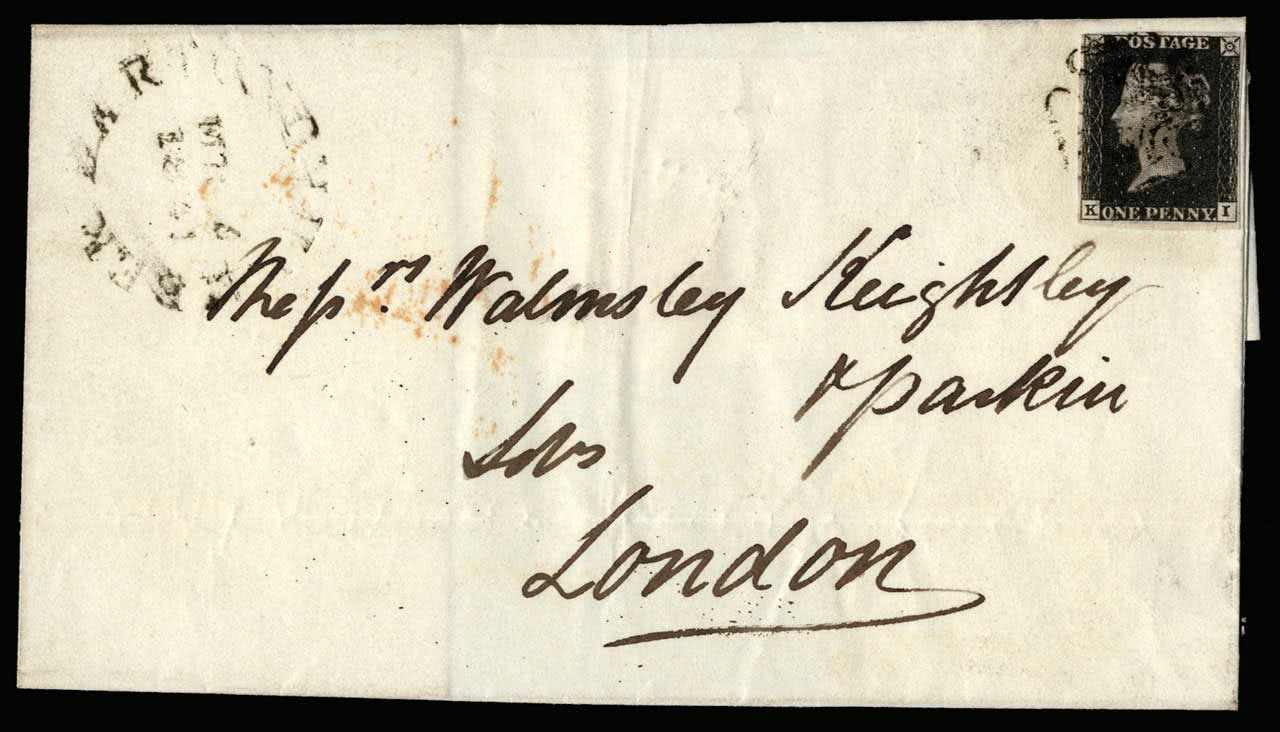 POSTAGE
K ONE PENNY I
Messrs. Walmsley Keightley
& Parkin
Sols
London